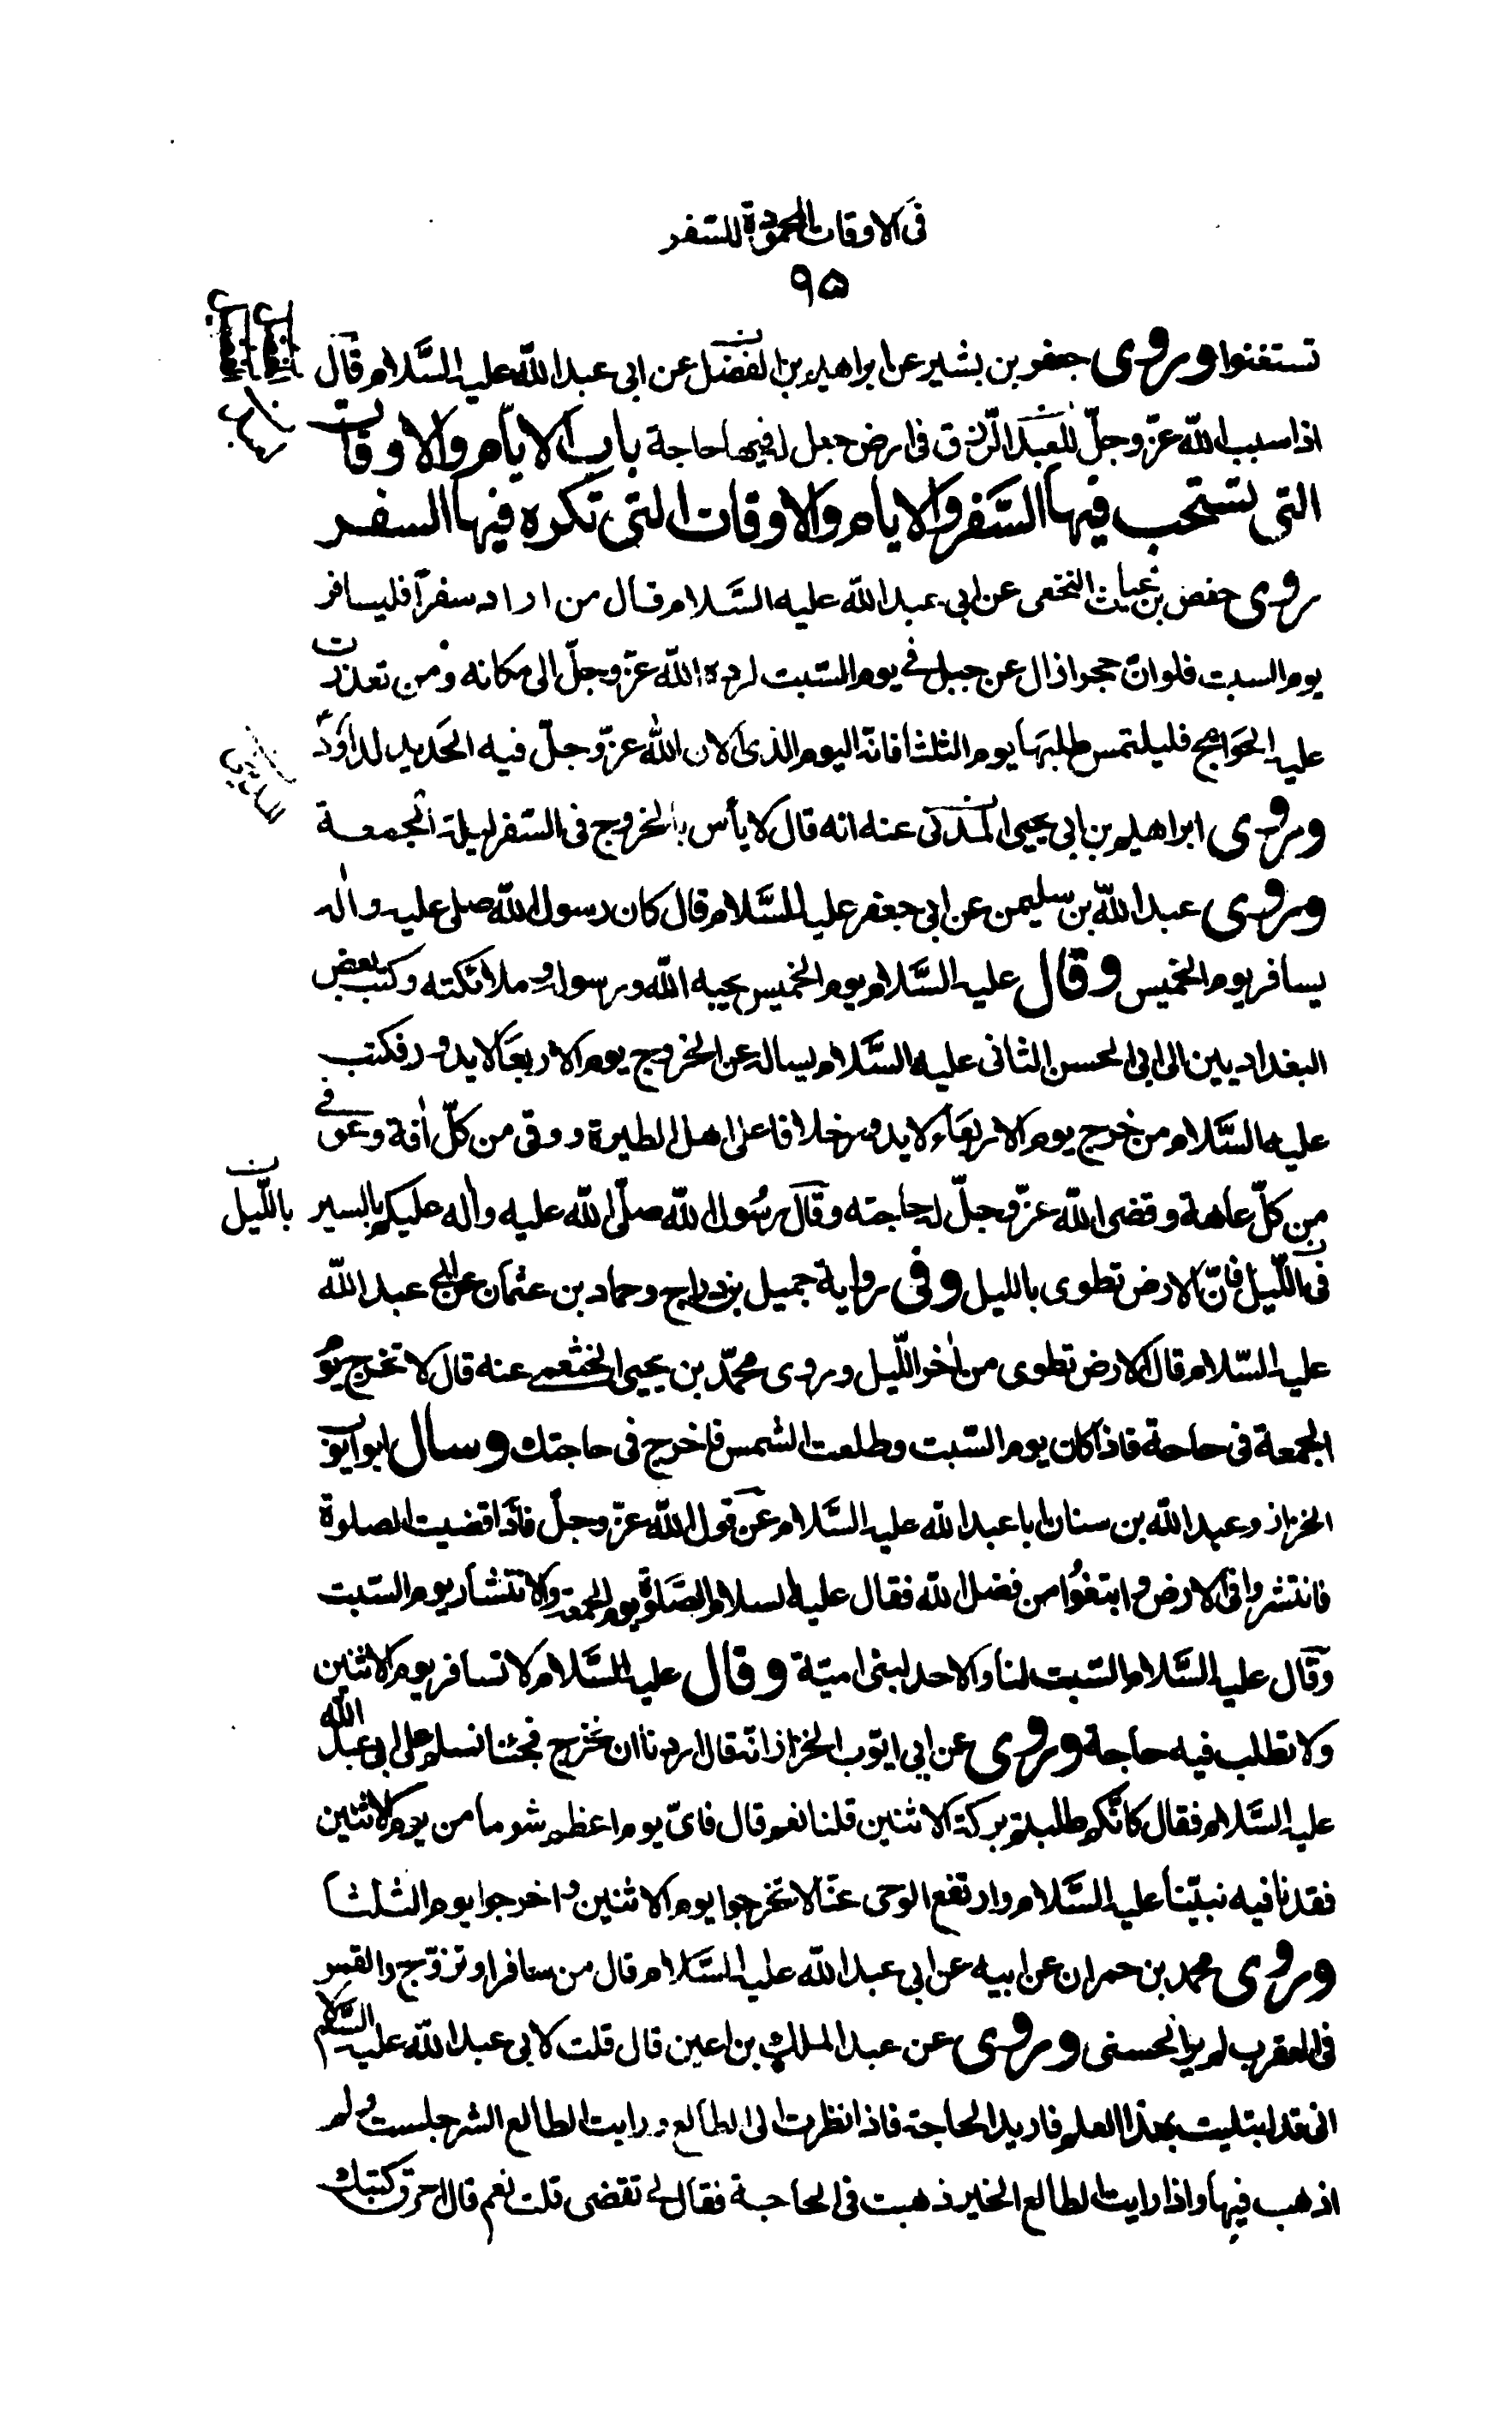 في الاوقات المحمودة للسفر
٩٥
تستغنوا وروى جعفر بن بشير عن ابراهيم بن الفضل عن ابى عبد الله عليه السَّلام قال
اذا سبب الله عزّ وجلّ للعبد الرّزق فى ارض جعل له فيها حاجة باب الايّام والاوقات
التى تستحب فيها السَّفر والايام والاوقات التى تكره فيها السفر
روى حفص بن غياث النخعى عن ابى عبد الله عليه السَّلام قال من اراد سفراً فليسافر
يوم السبت فلو انّ حجرا زال عن جبل فى يوم السّبت لرده الله عزّ وجلّ الى مكانه ومن تعذرت
عليه الحوائج فليلتمس طلبها يوم الثلثا فانّه اليوم الذى الان الله عزّ وجلّ فيه الحديد لداود ع
وروى ابراهيم بن ابى يحيى المدنى عنه انه قال لا بأس بالخروج فى السّفر ليلة الجمعة
وروى عبد الله بن سليمن عن ابى جعفر عليه السَّلام قال كان رسول الله صلى عليه واله
يسافر يوم الخميس وقال عليه السَّلام يوم الخميس يحبه الله ورسوله وملائكته وكتب بعض
البغداديين الى ابى الحسن الثانى عليه السَّلام يساله عن الخروج يوم الاربعا لا يدور فكتب
عليه السَّلام من خرج يوم الاربعاء لا يدور خلافا على اهل الطيرة ووقى من كلّ افة وعوفى
من كلّ عاهة وقضى الله عزّ وجلّ له حاجته وقال رسُول الله صلّى الله عليه واله عليكم بالسير بالليل
فى اللّيل فانّ الارض تطوى بالليل وفى رواية جميل بن دراج وحماد بن عثمان عن ابى عبد الله
عليه السّلام قال الارض تطوى من اخر اللّيل وروى محمّد بن يحيى الخثعمى عنه قال لا تخرج يوم
الجمعة فى حاجة فاذا كان يوم السّبت وطلعت الشمس فاخرج فى حاجتك وسال ابو ايوب
الخزاز وعبد الله بن سنان ابا عبد الله عليه السَّلام عن قول الله عزّ وجلّ فاذا قضيت الصلوة
فانتشروا فى الارض وابتغوُا من فضل الله فقال عليه السلام الصّلوة يوم الجمعة والانتشار يوم السّبت
وقال عليه السَّلام السّبت لنا والاحد لبنى اميّة وقال عليه السَّلام لا تسافر يوم الاثنين
ولا تطلب فيه حاجة وروى عن ابى ايّوب الخزاز انّه قال اردنا ان نخرج فجئنا نسلم على ابى عبد الله
عليه السَّلام فقال كانّكم طلبتم بركة الاثنين قلنا نعم قال فاىّ يوم اعظم شوما من يوم الاثنين
فقدنا فيه نبيّنا عليه السَّلام وارتفع الوحى عنّا لا تخرجوا يوم الاثنين واخرجوا يوم الثلثا
وروى محمد بن حمران عن ابيه عن ابى عبد الله عليه السَّلام قال من سافر او تزوّج والقمر
فى العقرب لم ير الحسنى وروى عن عبد الملك بن اعين قال قلت لابى عبد الله عليه السَّلام
انى قد ابتليت بهذا العلم فاريد الحاجة فاذا نظرت الى الطالع ورايت الطالع الشر جلست ولم
اذهب فيها واذا رايت الطالع الخير ذهبت فى الحاجة فقال لى تقضى قلت نعم قال احرق كتبك